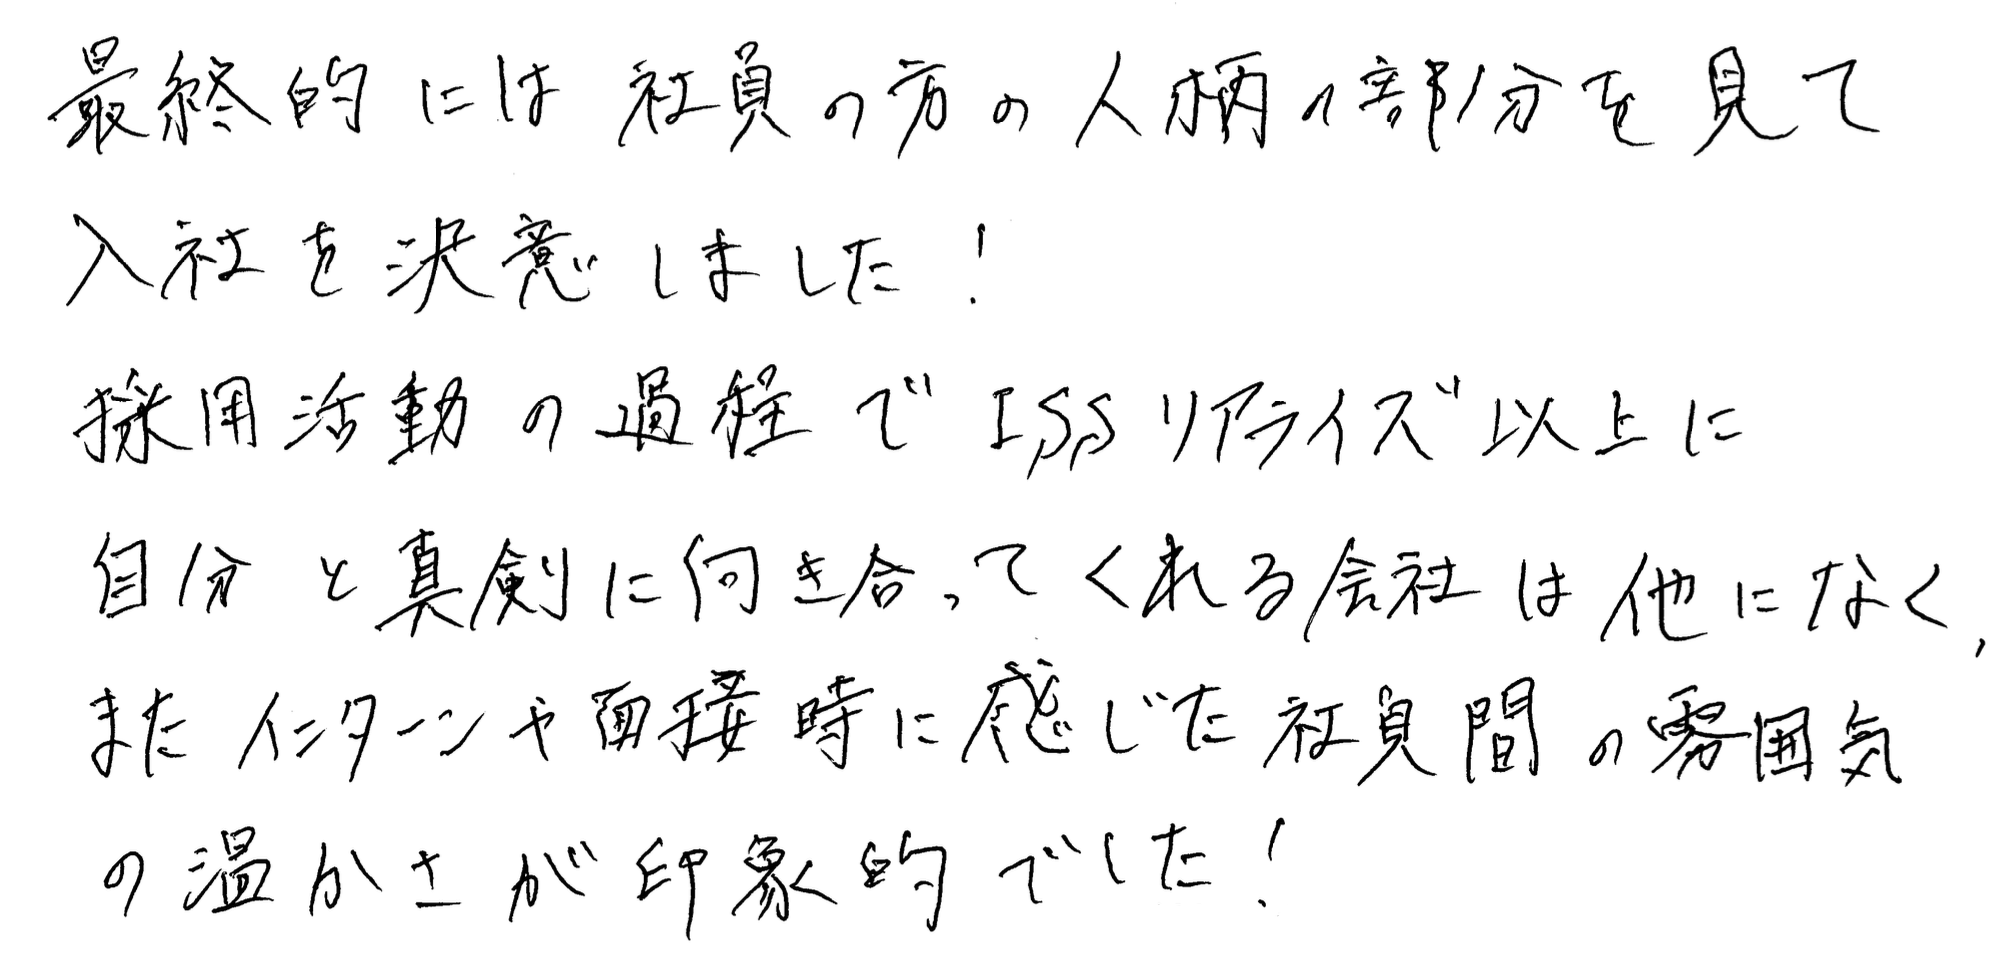 最終的には社員の方の人柄の部分を見て
入社を決意しました!
採用活動の過程でISSリアライズ以上に
自分と真剣に向き合ってくれる会社は他になく、
またインターンや面接時に感じた社員間の雰囲気
の温かさが印象的でした!